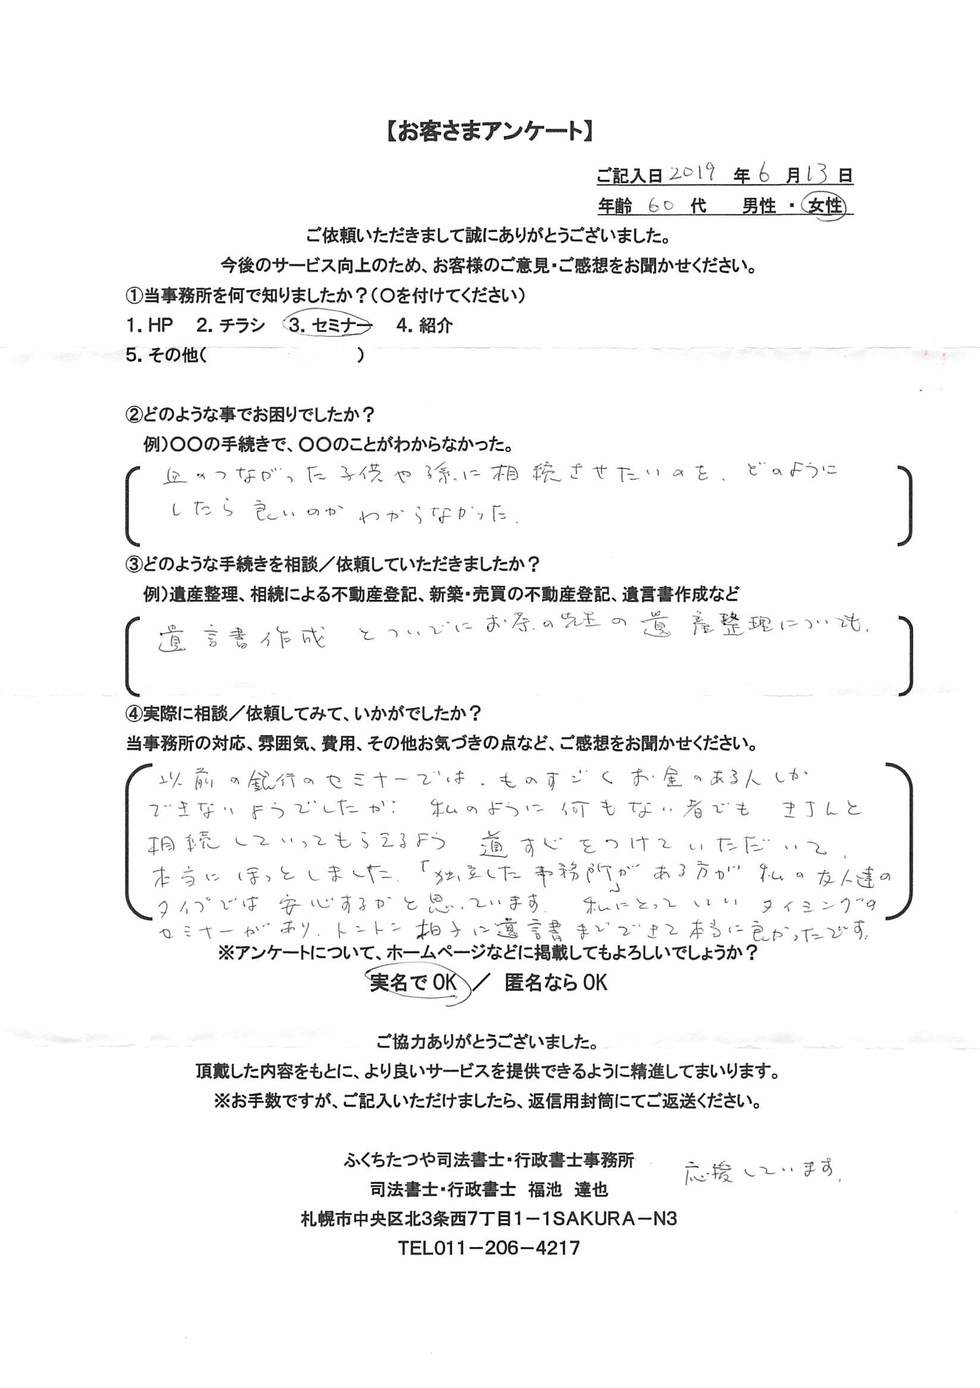 【お客さまアンケート】
ご記入日 2019 年 6 月 13 日
年齢 60 代 男性 ・ 女性
ご依頼いただきまして誠にありがとうございました。
今後のサービス向上のため、お客様のご意見・ご感想をお聞かせください。
①当事務所を何で知りましたか？（○を付けてください）
1. HP 2. チラシ 3. セミナー 4. 紹介
5. その他（ ）
②どのような事でお困りでしたか？
例）○○の手続きで、○○のことがわからなかった。
血のつながった子供や孫に相続させたいのを、どのように
したら良いのかわからなかった。
③どのような手続きを相談／依頼していただきましたか？
例）遺産整理、相続による不動産登記、新築・売買の不動産登記、遺言書作成など
遺言書作成とついでにお茶の先生の遺産整理についても。
④実際に相談／依頼してみて、いかがでしたか？
当事務所の対応、雰囲気、費用、その他お気づきの点など、ご感想をお聞かせください。
以前の銀行のセミナーでは、ものすごくお金のある人しか
できないようでしたが、私のように何もない者でもきちんと
相続していってもらえるよう道すじをつけていただいて、
本当にほっとしました。「独立した事務所」がある方が私の友人達の
タイプでは安心するかと思っています。私にとっていいタイミングの
セミナーがあり、トントン拍子に遺言書までできて本当に良かったです。
※アンケートについて、ホームページなどに掲載してもよろしいでしょうか？
実名でOK ／ 匿名ならOK
ご協力ありがとうございました。
頂戴した内容をもとに、より良いサービスを提供できるように精進してまいります。
※お手数ですが、ご記入いただけましたら、返信用封筒にてご返送ください。
ふくちたつや司法書士・行政書士事務所
応援しています。
司法書士・行政書士 福池 達也
札幌市中央区北3条西7丁目1－1SAKURA－N3
TEL011－206－4217